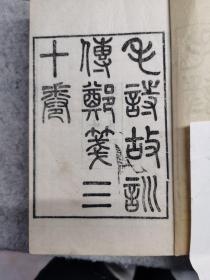 毛詩故訓
傳鄭箋三
十卷